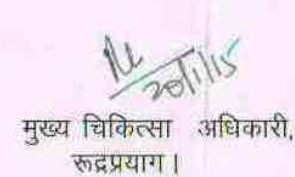 20/1/15
मुख्य चिकित्सा अधिकारी,
रूद्रप्रयाग।